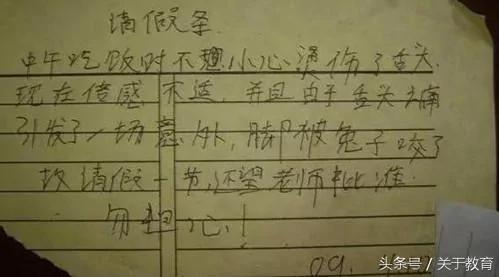 请假条
中午吃饭时不小心烫伤了舌头.
现在倍感不适,并且由于舌头之痛
引发了一场意外,脚被兔子咬了
故请假一节,还望老师批准.
勿担心!
09.
头条号/关于教育